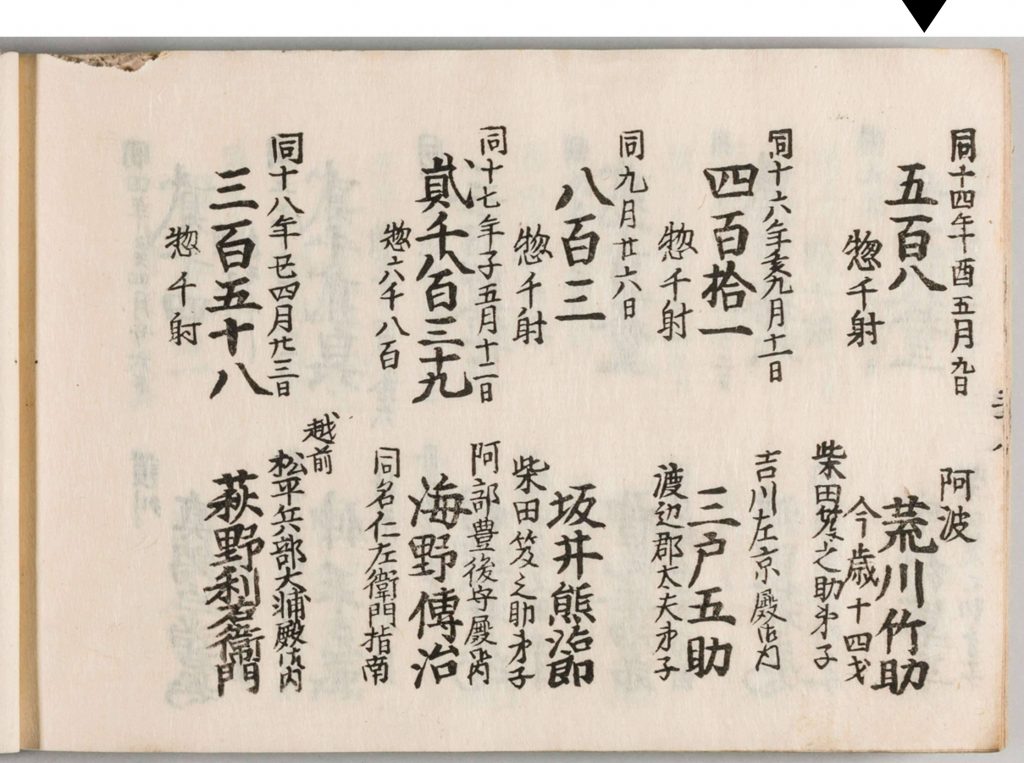 同十四年酉五月九日
五百八
惣千射
阿波
荒川竹助
今歳十四才
柴田笈之助弟子
同十六年亥九月十一日
四百拾一
惣千射
吉川左京殿御内
三戸五助
渡辺郡太夫弟子
同九月廿六日
八百三
惣千射
坂井熊治郎
柴田笈之助弟子
同十七年子五月十二日
貳千八百三十九
惣六千八百
阿部豊後守殿御内
海野傳治
同名仁左衛門指南
同十八年丑四月廿三日
三百五十八
惣千射
越前
松平兵部大輔殿御内
萩野利右衛門